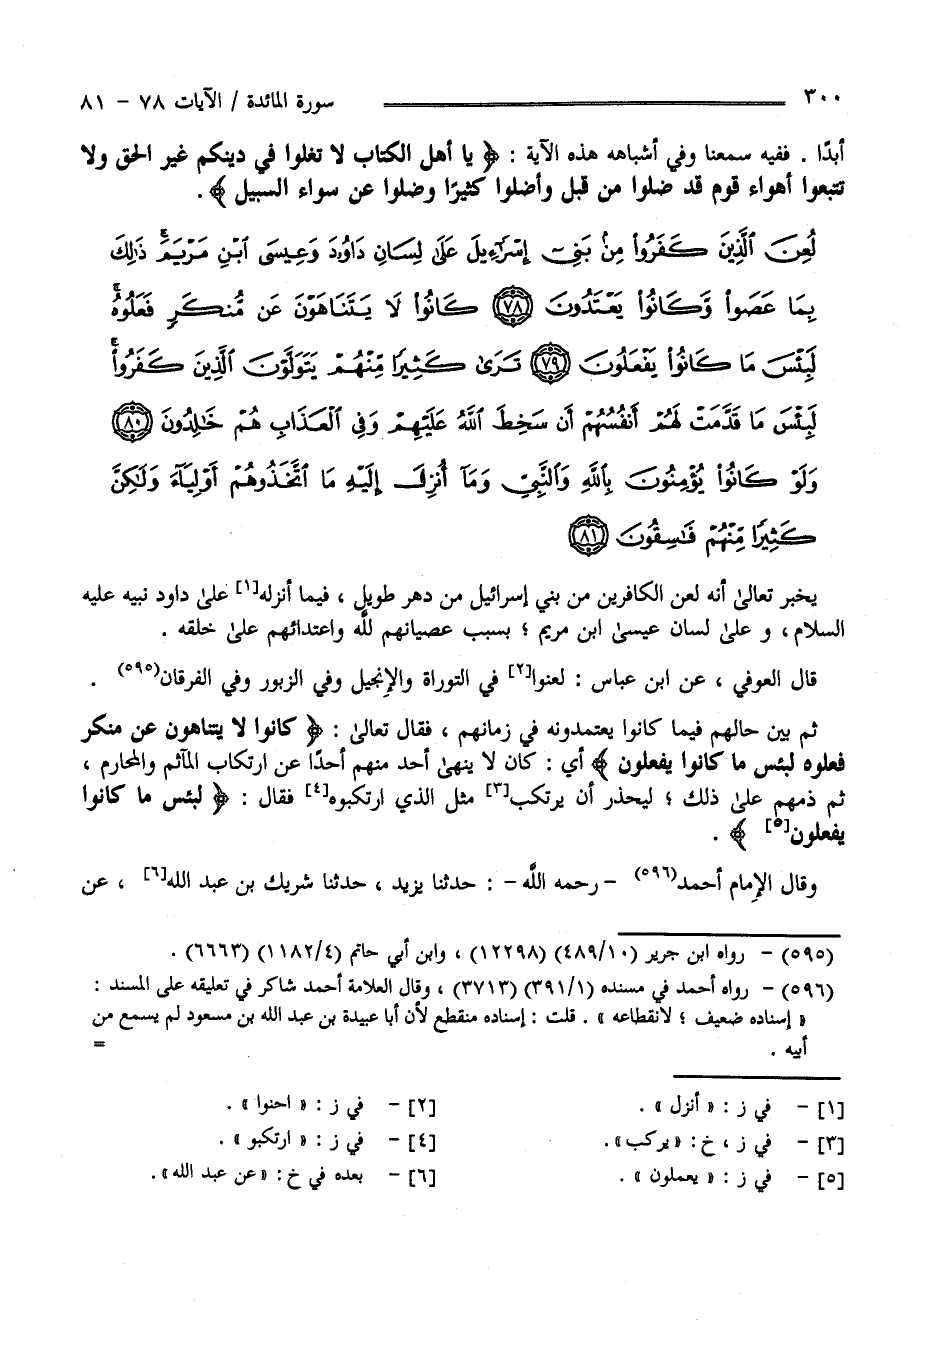 ٣٠٠ سورة المائدة / الآيات ٧٨ - ٨١
أبدًا . ففيه سمعنا وفي أشباهه هذه الآية : ﴿ يا أهل الكتاب لا تغلوا في دينكم غير الحق ولا
تتبعوا أهواء قوم قد ضلوا من قبل وأضلوا كثيرًا وضلوا عن سواء السبيل ﴾ .
لُعِنَ ٱلَّذِينَ كَفَرُوا۟ مِنۢ بَنِىٓ إِسْرَٰٓءِيلَ عَلَىٰ لِسَانِ دَاوُۥدَ وَعِيسَى ٱبْنِ مَرْيَمَ ۚ ذَٰلِكَ
بِمَا عَصَوا۟ وَّكَانُوا۟ يَعْتَدُونَ ﴿٧٨﴾ كَانُوا۟ لَا يَتَنَاهَوْنَ عَن مُّنكَرٍ فَعَلُوهُ ۚ
لَبِئْسَ مَا كَانُوا۟ يَفْعَلُونَ ﴿٧٩﴾ تَرَىٰ كَثِيرًا مِّنْهُمْ يَتَوَلَّوْنَ ٱلَّذِينَ كَفَرُوا۟ ۚ
لَبِئْسَ مَا قَدَّمَتْ لَهُمْ أَنفُسُهُمْ أَن سَخِطَ ٱللَّهُ عَلَيْهِمْ وَفِى ٱلْعَذَابِ هُمْ خَٰلِدُونَ ﴿٨٠﴾
وَلَوْ كَانُوا۟ يُؤْمِنُونَ بِٱللَّهِ وَٱلنَّبِىِّ وَمَآ أُنزِلَ إِلَيْهِ مَا ٱتَّخَذُوهُمْ أَوْلِيَآءَ وَلَٰكِنَّ
كَثِيرًا مِّنْهُمْ فَٰسِقُونَ ﴿٨١﴾
يخبر تعالىٰ أنه لعن الكافرين من بني إسرائيل من دهر طويل ، فيما أنزله[١] علىٰ داود نبيه عليه
السلام ، و علىٰ لسان عيسىٰ ابن مريم ؛ بسبب عصيانهم للَّه واعتدائهم علىٰ خلقه .
قال العوفي ، عن ابن عباس : لعنوا[٢] في التوراة والإنجيل وفي الزبور وفي الفرقان(٥٩٥) .
ثم بين حالهم فيما كانوا يعتمدونه في زمانهم ، فقال تعالىٰ : ﴿ كانوا لا يتناهون عن منكر
فعلوه لبئس ما كانوا يفعلون ﴾ أي : كان لا ينهىٰ أحد منهم أحدًا عن ارتكاب المآثم والمحارم ،
ثم ذمهم علىٰ ذلك ؛ ليحذر أن يرتكب[٣] مثل الذي ارتكبوه[٤] فقال : ﴿ لبئس ما كانوا
يفعلون[٥] ﴾ .
وقال الإمام أحمد(٥٩٦) - رحمه اللَّه - : حدثنا يزيد ، حدثنا شريك بن عبد الله[٦] ، عن
(٥٩٥) - رواه ابن جرير (٤٨٩/١٠) (١٢٢٩٨) ، وابن أبي حاتم (١١٨٢/٤) (٦٦٦٣) .
(٥٩٦) - رواه أحمد في مسنده (٣٩١/١) (٣٧١٣) ، وقال العلامة أحمد شاكر في تعليقه على المسند :
« إسناده ضعيف ؛ لانقطاعه » . قلت : إسناده منقطع لأن أبا عبيدة بن عبد الله بن مسعود لم يسمع من
أبيه . =
[١] - في ز : « أنزل » . [٢] - في ز : « احنوا » .
[٣] - في ز ، خ : «يركب» . [٤] - في ز : « ارتكبو » .
[٥] - في ز : « يعملون » . [٦] - بعده في خ : «عن عبد الله» .